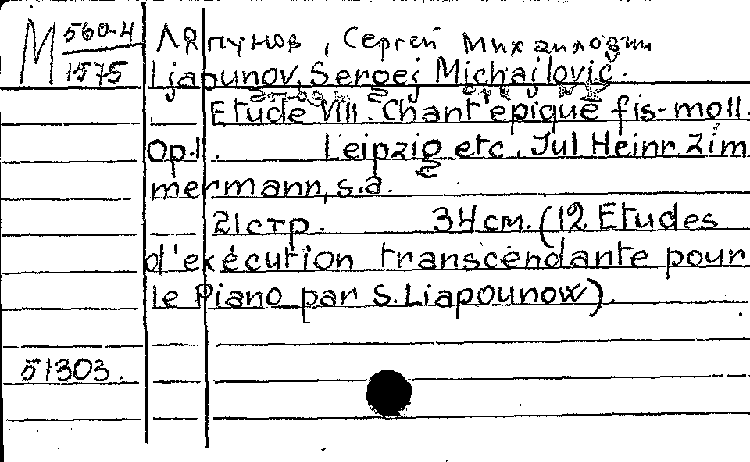 М 560-4
1575
Ляпунов, Сергей Михаилович
Ljapunov, Sergej Michajlovič.
Etude VIII. Chant épique fis-moll.
Op.11. Leipzig etc., Jul Heinr. Zim
mermann, s.a.
21 стр. 34 см. (12 Etudes
d'exécution transcendante pour
le Piano par S. Liapounow).
51303.